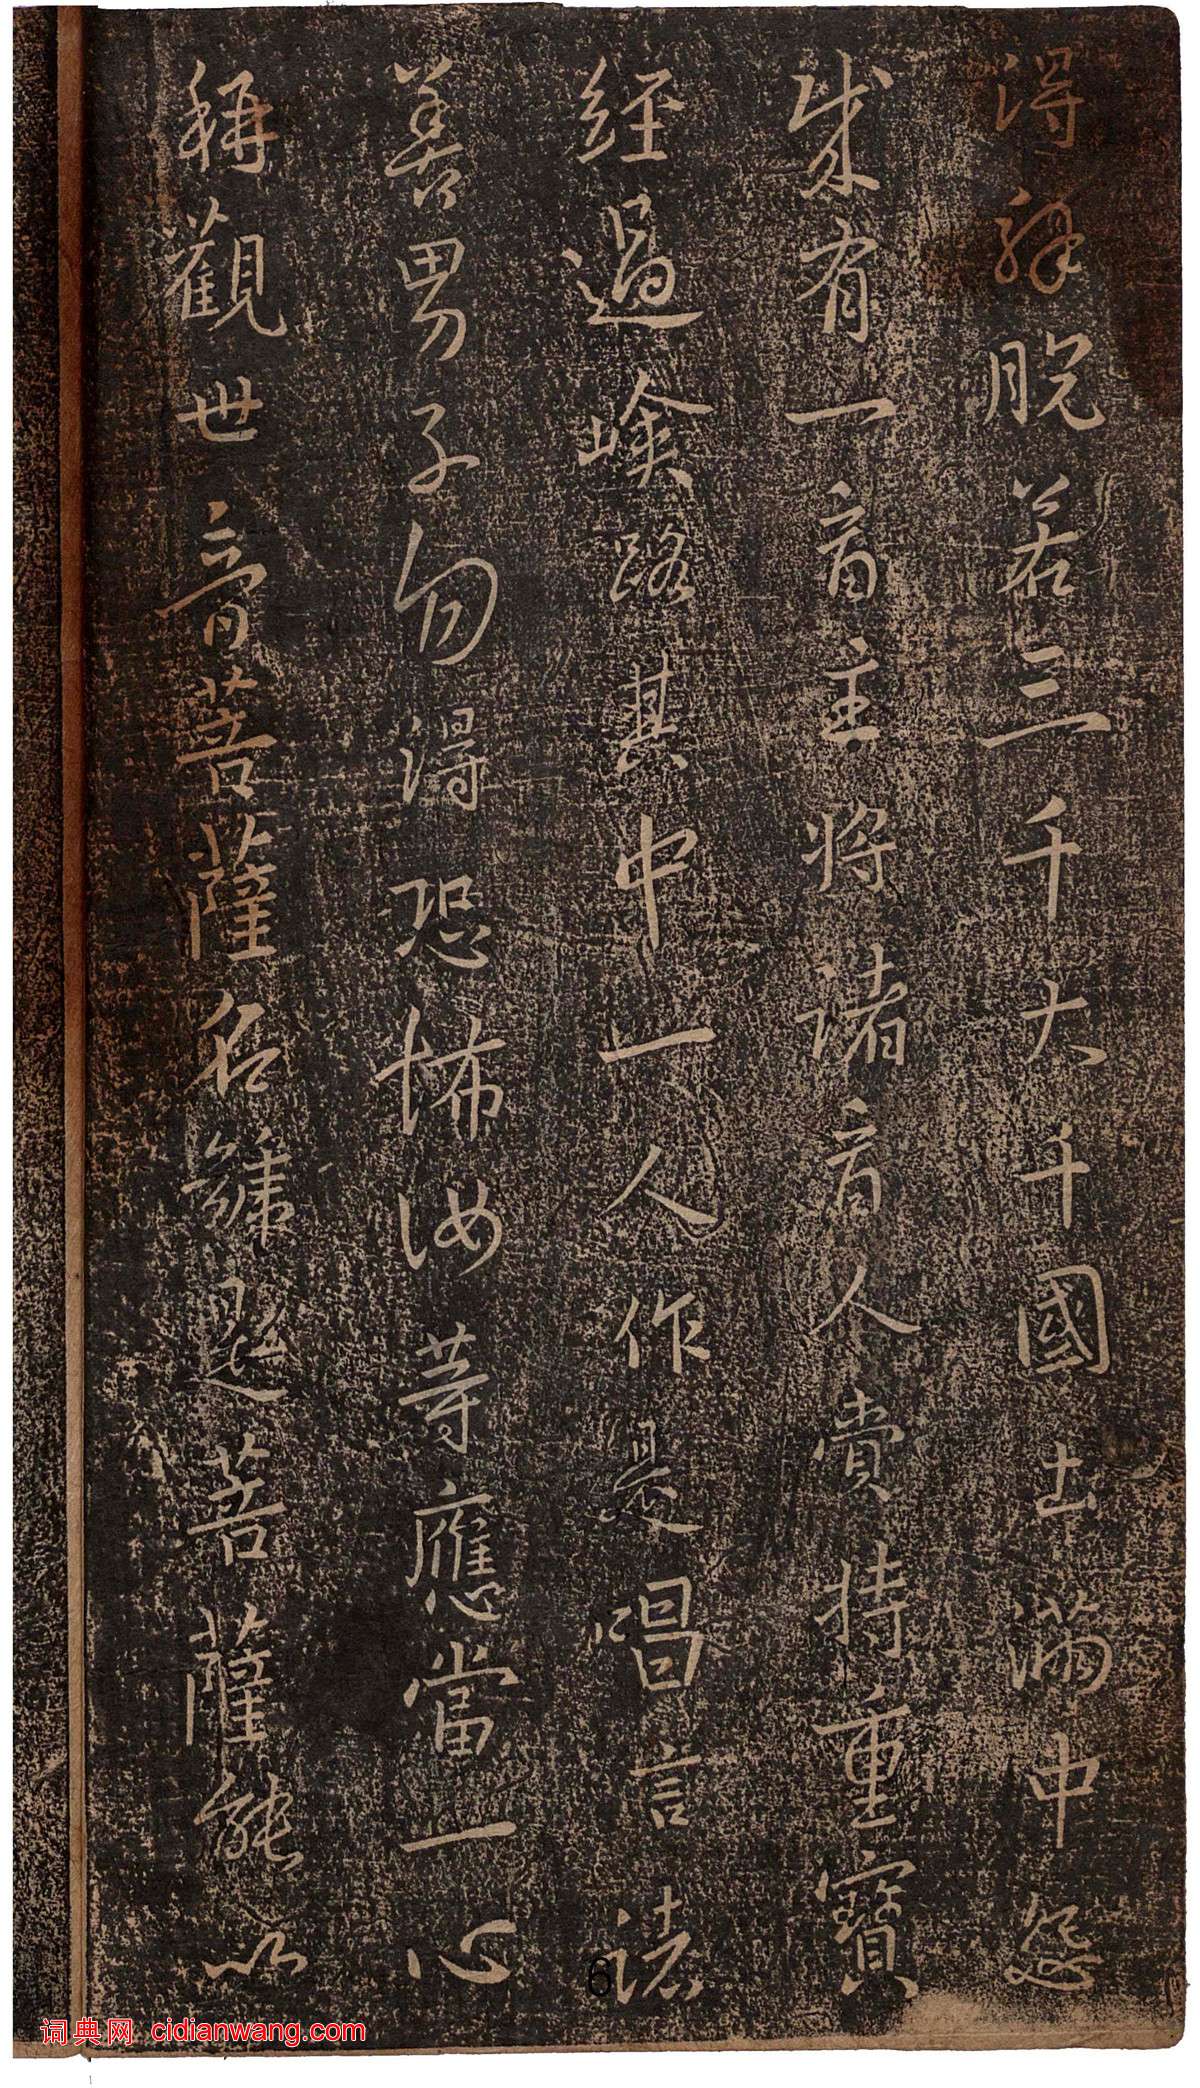 得解脱若三千大千國土滿中怨
賊有一商主將諸商人賷持重寶
經過嶮路其中一人作是唱言諸
善男子勿得恐怖汝等應當一心
稱觀世音菩薩名號是菩薩能以
6
词典网 cidianwang.com